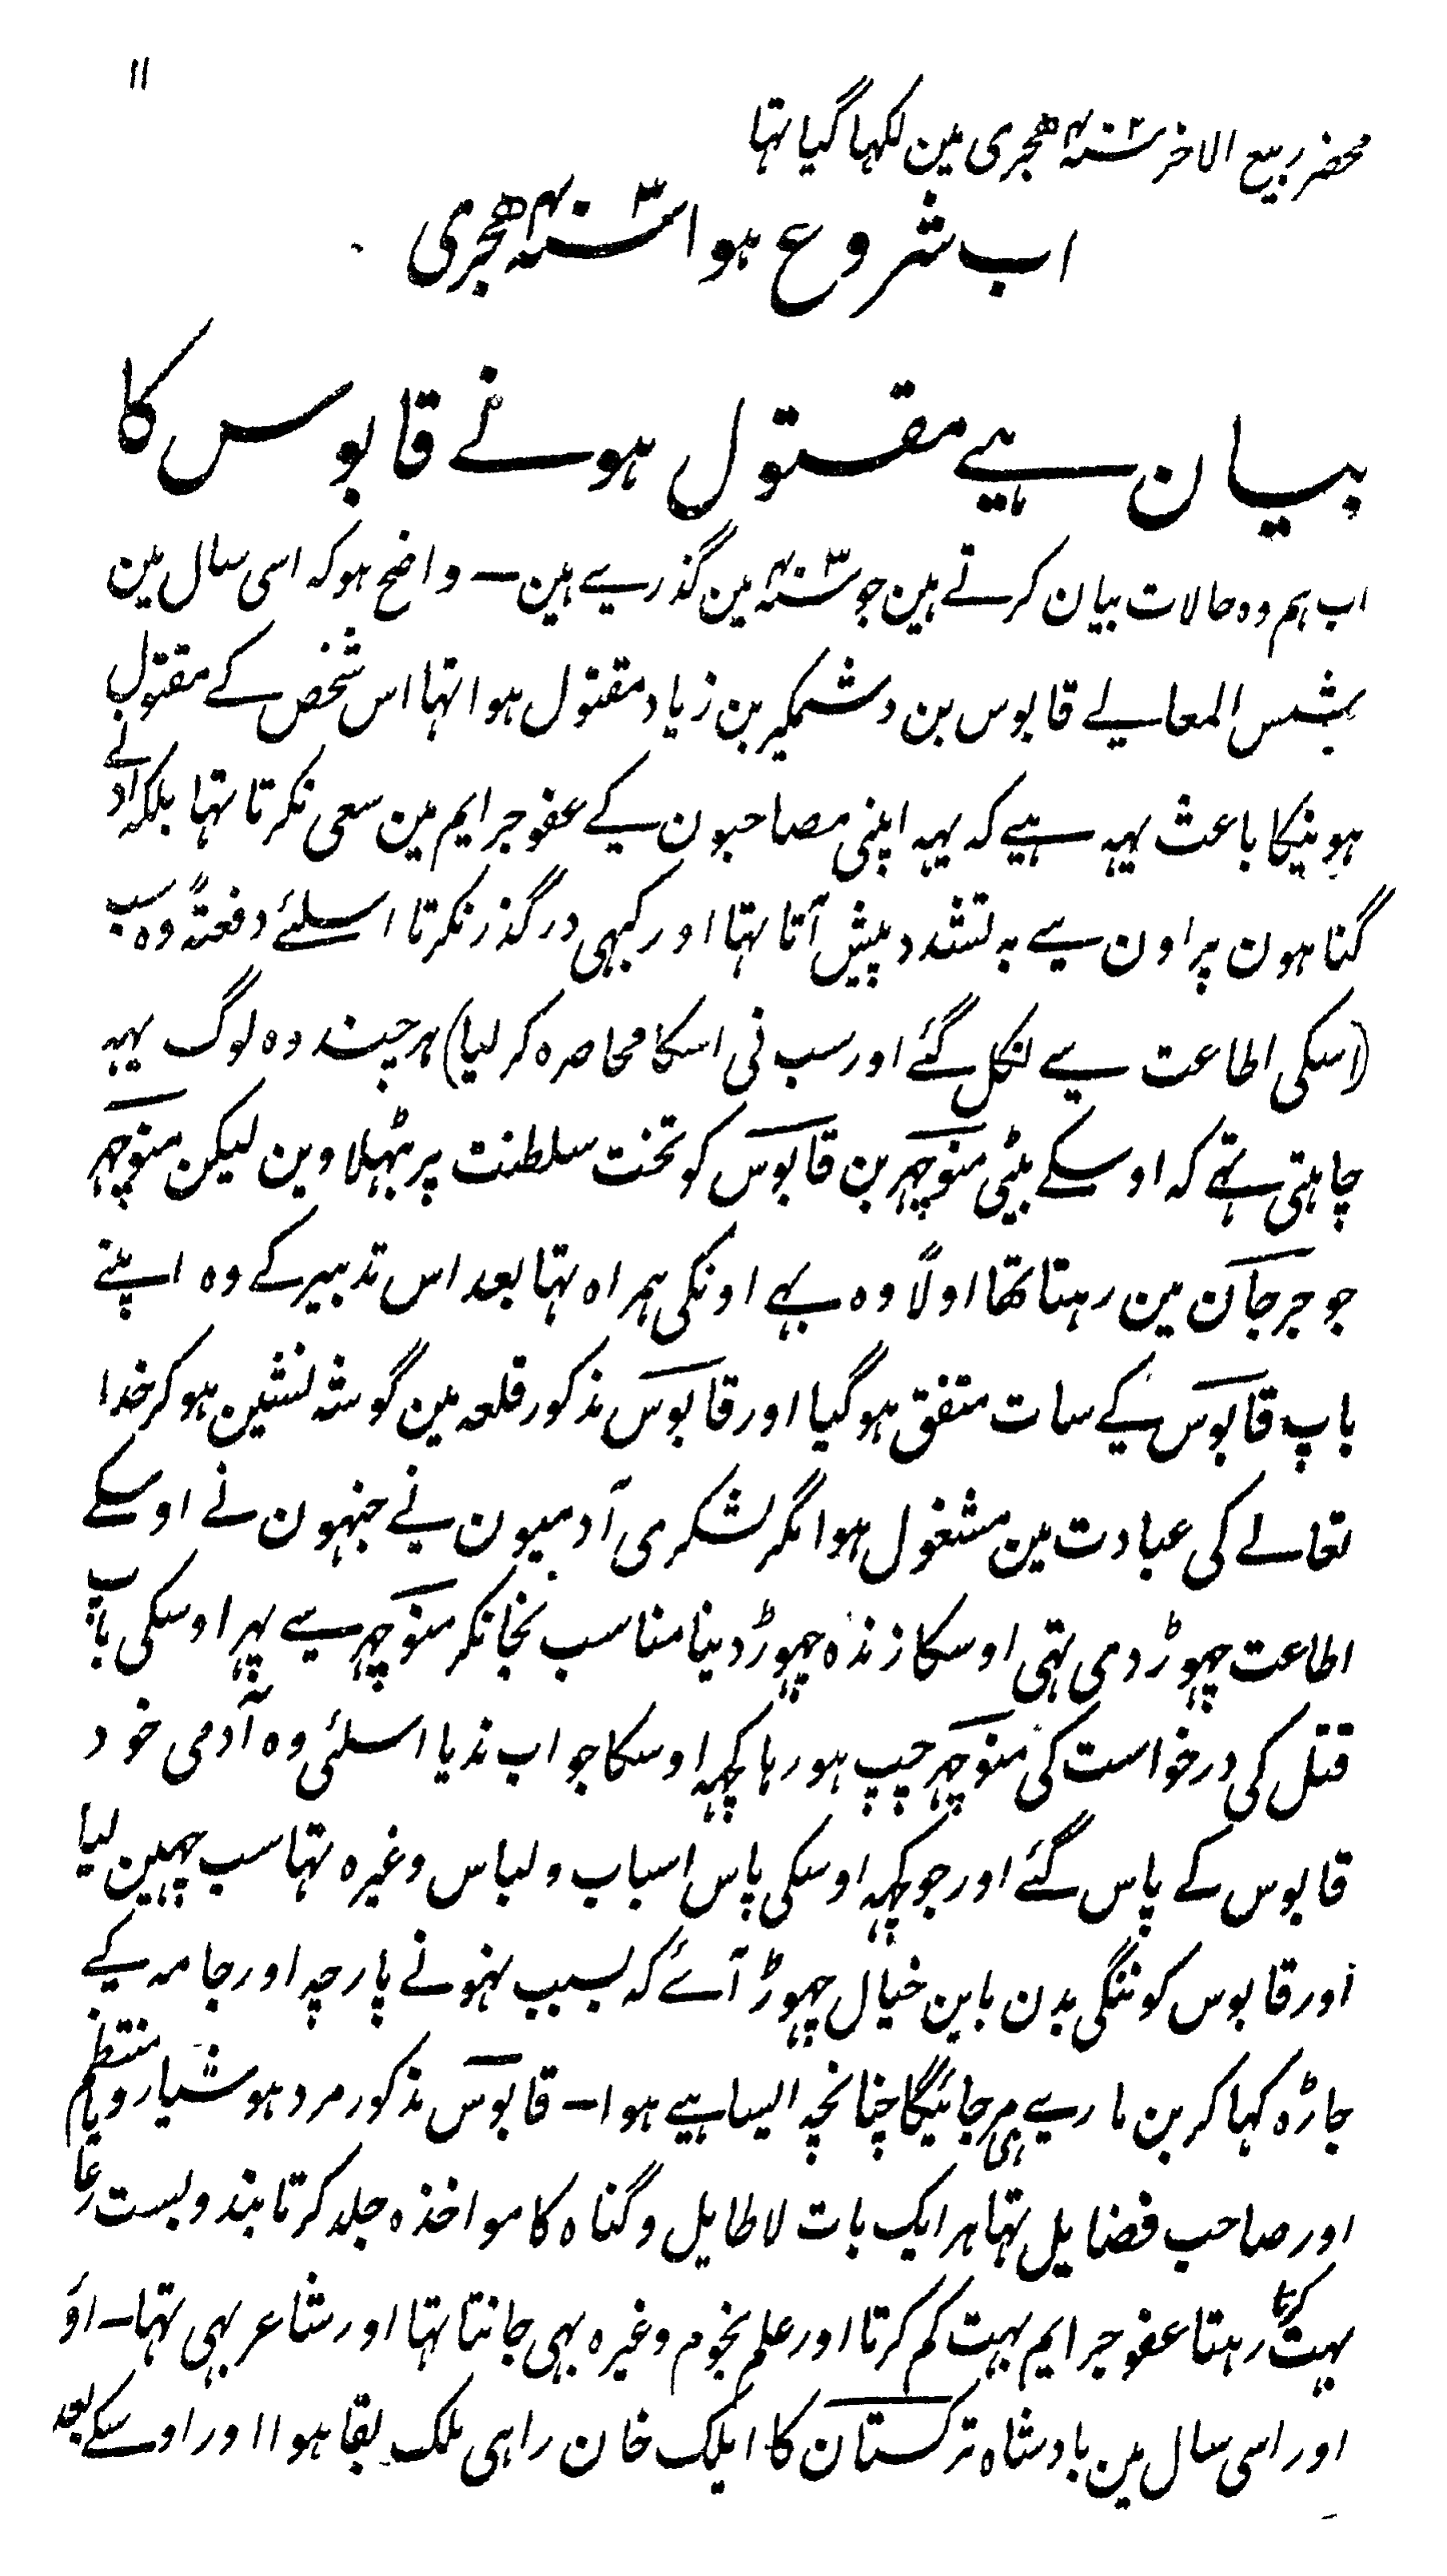 ۱۱
محضر ربیع الاخر سنہ۴۰۲ ہجری مین لکہا گیا تہا
اب شروع ہوا سنہ۴۰۳ ہجری
بیان ہے مقتول ہونے قابوس کا
اب ہم وہ حالات بیان کرتے ہین جو سنہ۴۰۳ مین گذرے ہین — واضح ہو کہ اسی سال مین
شمس المعالے قابوس بن وشمگیر بن زیاد مقتول ہوا تہا اس شخص کے مقتول
ہونیکا باعث یہہ ہے کہ یہہ اپنی مصاحبون کے عفو جرایم مین سعی نکرتا تہا بلکہ ادنے
گناہون پر اون سے بہ تشدد پیش آتا تہا اور کبہی درگذر نکرتا اسلئے دفعتہً وہ سب
(اسکی اطاعت سے نکل گئے اور سب نی اسکا محاصرہ کر لیا) ہر چند وہ لوگ یہہ
چاہتی تہے کہ اوسکے بیٹی منوچہر بن قابوس کو تخت سلطنت پر بٹہلاوین لیکن منوچہر
جو جرجان مین رہتا تھا اولاً وہ بہے اونکی ہمراہ تہا بعد اس تدبیر کے وہ اپنے
باپ قابوس کے سات متفق ہو گیا اور قابوس مذکور قلعہ مین گوشہ نشین ہو کر خدا
تعالے کی عبادت مین مشغول ہوا مگر لشکری آدمیون نے جنہون نے اوسکے
اطاعت چہوڑ دی تہی اوسکا زندہ چہوڑ دینا مناسب نجانکر منوچہر سے پہر اوسکی باپ
قتل کی درخواست کی منوچہر چپ ہو رہا کچہہ اوسکا جواب ندیا اسلئی وہ آدمی خود
قابوس کے پاس گئے اور جو کچہہ اوسکی پاس اسباب و لباس وغیرہ تہا سب چہین لیا
اور قابوس کو ننگی بدن باین خیال چہوڑ آئے کہ بسبب نہونے پارچہ اور جامہ کے
جاڑہ کہا کر بن مارے ہی مر جائیگا چنانچہ ایسا ہے ہوا — قابوس مذکور مرد ہوشیار و با منتظم
اور صاحب فضایل تہا ہر ایک بات لاطایل و گناہ کا مواخذہ جلد کرتا بندوبست رعایا
بہت کرتا رہتا عفو جرایم بہت کم کرتا اور علم نجوم وغیرہ بہی جانتا تہا اور شاعر بہی تہا — اؤ
اور اسی سال مین بادشاہ ترکستان کا ایلک خان راہی ملک بقا ہوا اور اوسکے بعد